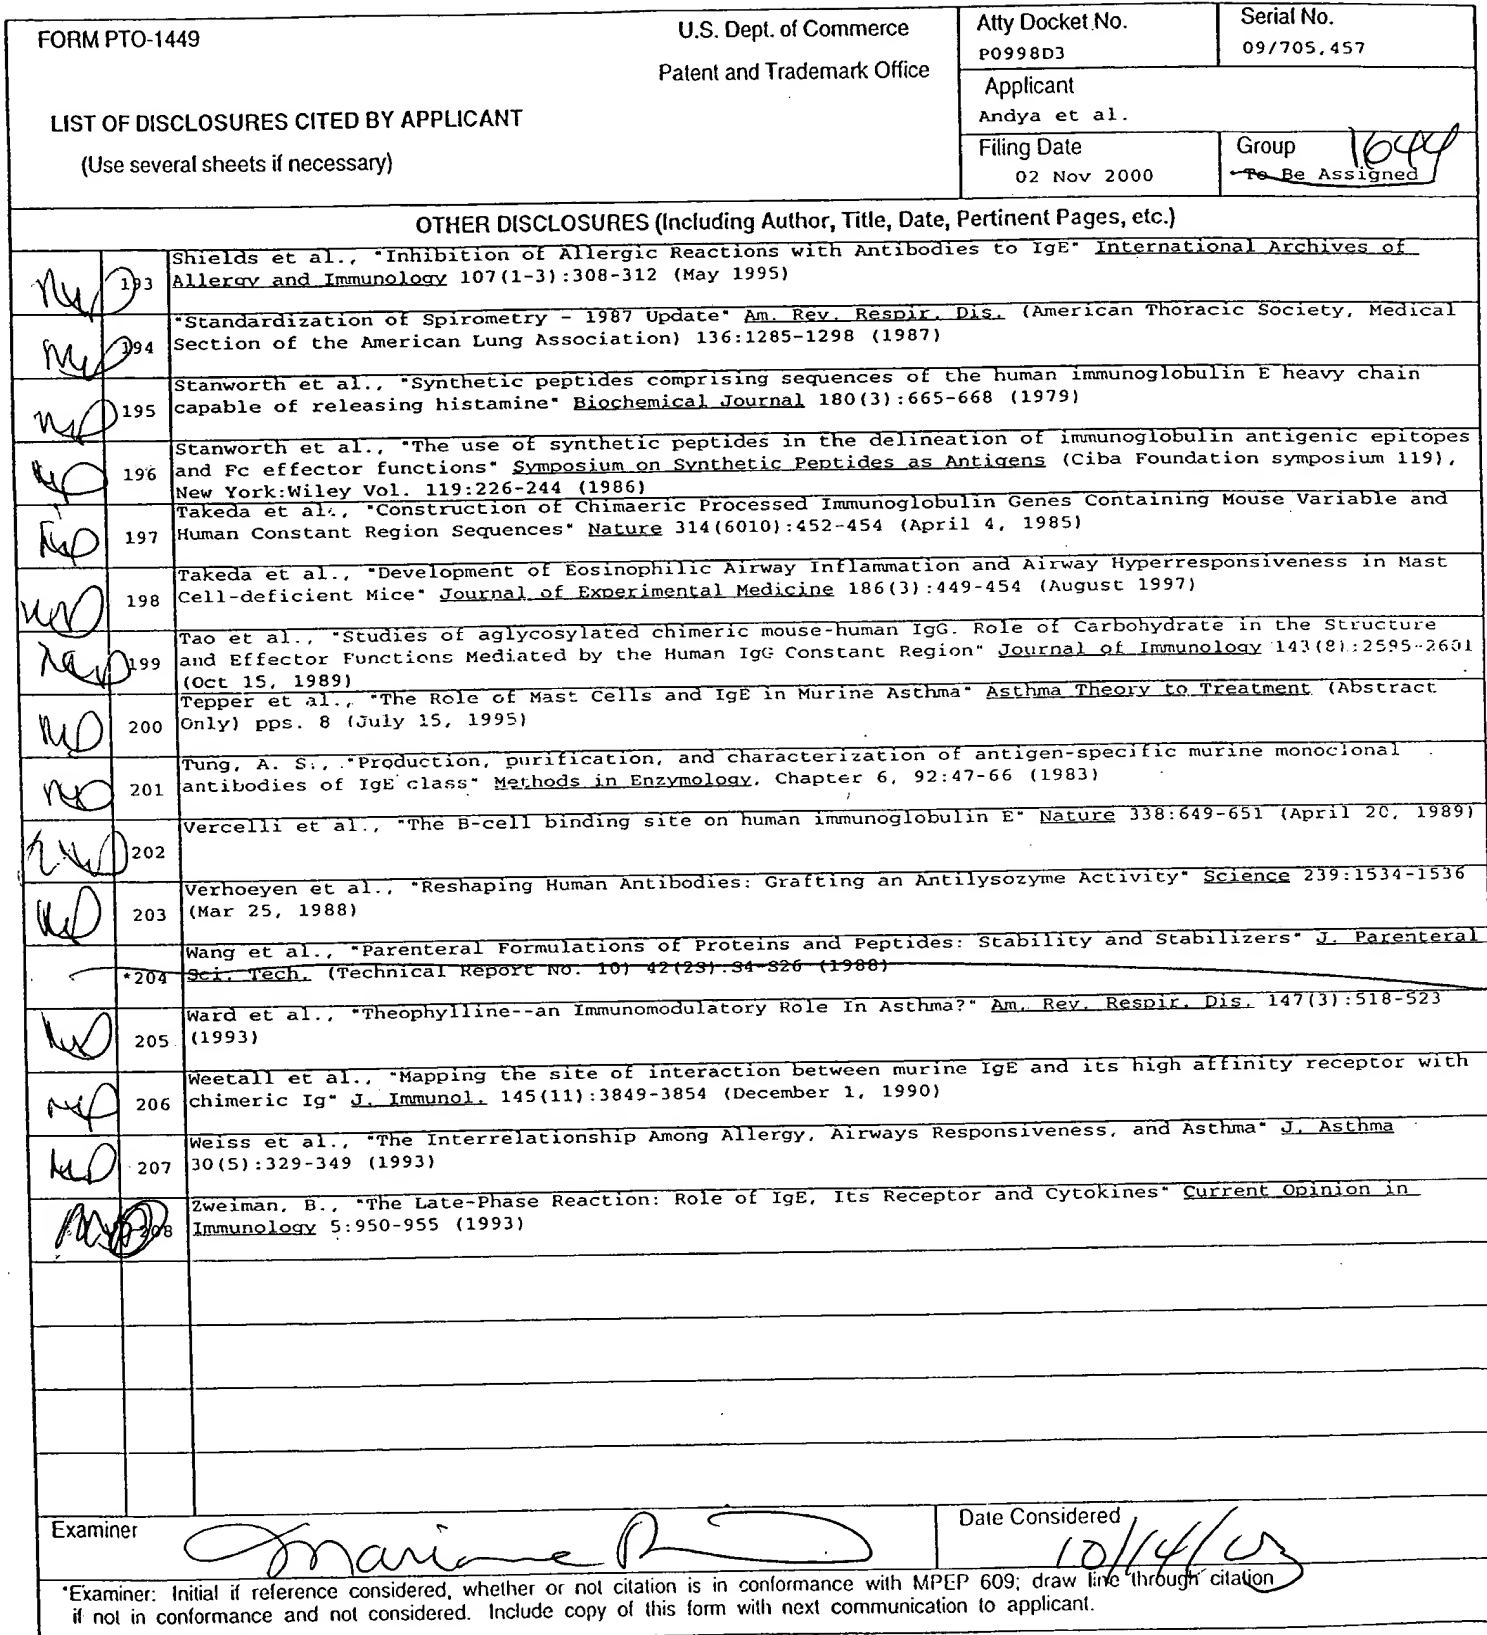 FORM PTO-1449
U.S. Dept. of Commerce
Patent and Trademark Office
Atty Docket No.
P0998D3
Serial No.
09/705,457
LIST OF DISCLOSURES CITED BY APPLICANT
(Use several sheets if necessary)
Applicant
Andya et al.
Filing Date
02 Nov 2000
Group 1644
To Be Assigned
OTHER DISCLOSURES (Including Author, Title, Date, Pertinent Pages, etc.)
Shields et al., "Inhibition of Allergic Reactions with Antibodies to IgE" International Archives of
193 Allergy and Immunology 107(1-3):308-312 (May 1995)
"Standardization of Spirometry - 1987 Update" Am. Rev. Respir. Dis. (American Thoracic Society, Medical
194 Section of the American Lung Association) 136:1285-1298 (1987)
Stanworth et al., "Synthetic peptides comprising sequences of the human immunoglobulin E heavy chain
195 capable of releasing histamine" Biochemical Journal 180(3):665-668 (1979)
Stanworth et al., "The use of synthetic peptides in the delineation of immunoglobulin antigenic epitopes
196 and Fc effector functions" Symposium on Synthetic Peptides as Antigens (Ciba Foundation symposium 119),
New York:Wiley Vol. 119:226-244 (1986)
Takeda et al., "Construction of Chimaeric Processed Immunoglobulin Genes Containing Mouse Variable and
197 Human Constant Region Sequences" Nature 314(6010):452-454 (April 4, 1985)
Takeda et al., "Development of Eosinophilic Airway Inflammation and Airway Hyperresponsiveness in Mast
198 Cell-deficient Mice" Journal of Experimental Medicine 186(3):449-454 (August 1997)
Tao et al., "Studies of aglycosylated chimeric mouse-human IgG. Role of Carbohydrate in the Structure
199 and Effector Functions Mediated by the Human IgG Constant Region" Journal of Immunology 143(8):2595-2601
(Oct 15, 1989)
Tepper et al., "The Role of Mast Cells and IgE in Murine Asthma" Asthma Theory to Treatment (Abstract
200 Only) pps. 8 (July 15, 1995)
Tung, A. S., "Production, purification, and characterization of antigen-specific murine monoclonal
201 antibodies of IgE class" Methods in Enzymology, Chapter 6, 92:47-66 (1983)
Vercelli et al., "The B-cell binding site on human immunoglobulin E" Nature 338:649-651 (April 20, 1989)
202
Verhoeyen et al., "Reshaping Human Antibodies: Grafting an Antilysozyme Activity" Science 239:1534-1536
203 (Mar 25, 1988)
Wang et al., "Parenteral Formulations of Proteins and Peptides: Stability and Stabilizers" J. Parenteral
*204 Sci. Tech. (Technical Report No. 10) 42(2S):S4-S26 (1988)
Ward et al., "Theophylline--an Immunomodulatory Role In Asthma?" Am. Rev. Respir. Dis. 147(3):518-523
205 (1993)
Weetall et al., "Mapping the site of interaction between murine IgE and its high affinity receptor with
206 chimeric Ig" J. Immunol. 145(11):3849-3854 (December 1, 1990)
Weiss et al., "The Interrelationship Among Allergy, Airways Responsiveness, and Asthma" J. Asthma
207 30(5):329-349 (1993)
Zweiman, B., "The Late-Phase Reaction: Role of IgE, Its Receptor and Cytokines" Current Opinion in
208 Immunology 5:950-955 (1993)
Examiner
Date Considered 10/14/03
*Examiner: Initial if reference considered, whether or not citation is in conformance with MPEP 609; draw line through citation
if not in conformance and not considered. Include copy of this form with next communication to applicant.